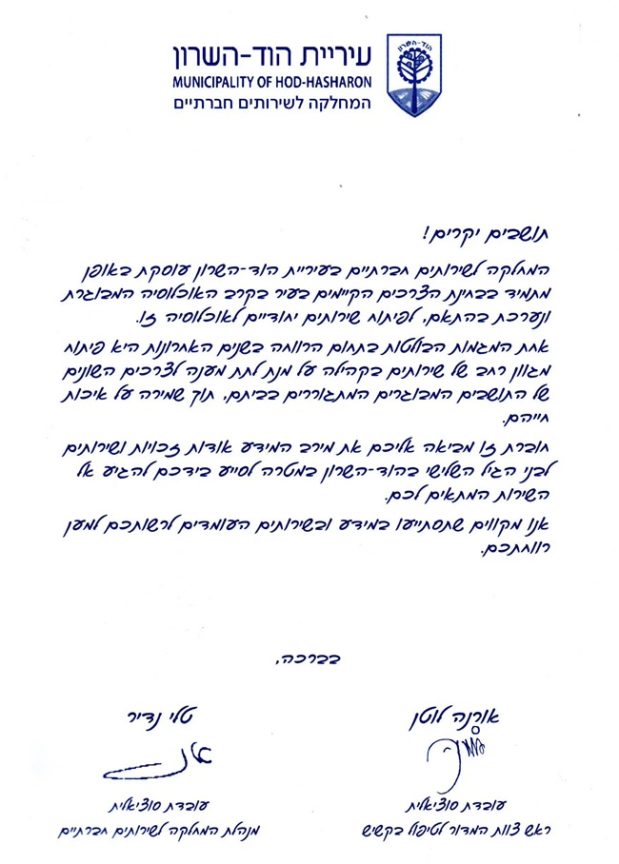 הוד-השרון
עיריית הוד-השרון
MUNICIPALITY OF HOD-HASHARON
המחלקה לשירותים חברתיים
תושבים יקרים!
המחלקה לשירותים חברתיים בעיריית הוד-השרון עוסקת באופן
מתמיד בבחינת הצרכים הקיימים בעיר בקרב האוכלוסיה המבוגרת
ונערכת בהתאם, לפיתוח שירותים יחודיים לאוכלוסיה זו.
אחת המגמות הבולטות בתחום הרווחה בשנים האחרונות היא פיתוח
מגוון רחב של שירותים בקהילה על מנת לתת מענה לצרכים השונים
של התושבים המבוגרים המתגוררים בביתם, תוך שמירה על איכות
חייהם.
חוברת זו מביאה אליכם את מירב המידע אודות זכויות ושירותים
לבני הגיל השלישי בהוד-השרון במטרה לסייע בידכם להגיע אל
השירות המתאים לכם.
אנו מקווים שתסתייעו במידע ובשירותים העומדים לרשותכם למען
רווחתכם.
בברכה,
אורנה לוטן
עובדת סוציאלית
ראש צוות המדור לטיפול בקשיש
טלי נדיר
עובדת סוציאלית
מנהלת המחלקה לשירותים חברתיים